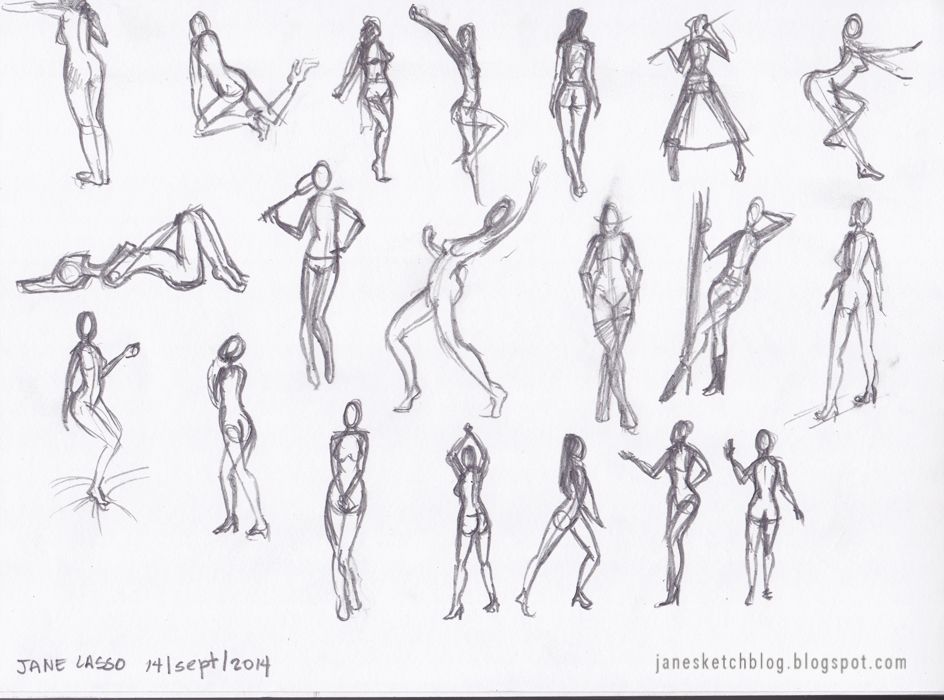 JANE LASSO 14/sept/2014
janesketchblog.blogspot.com